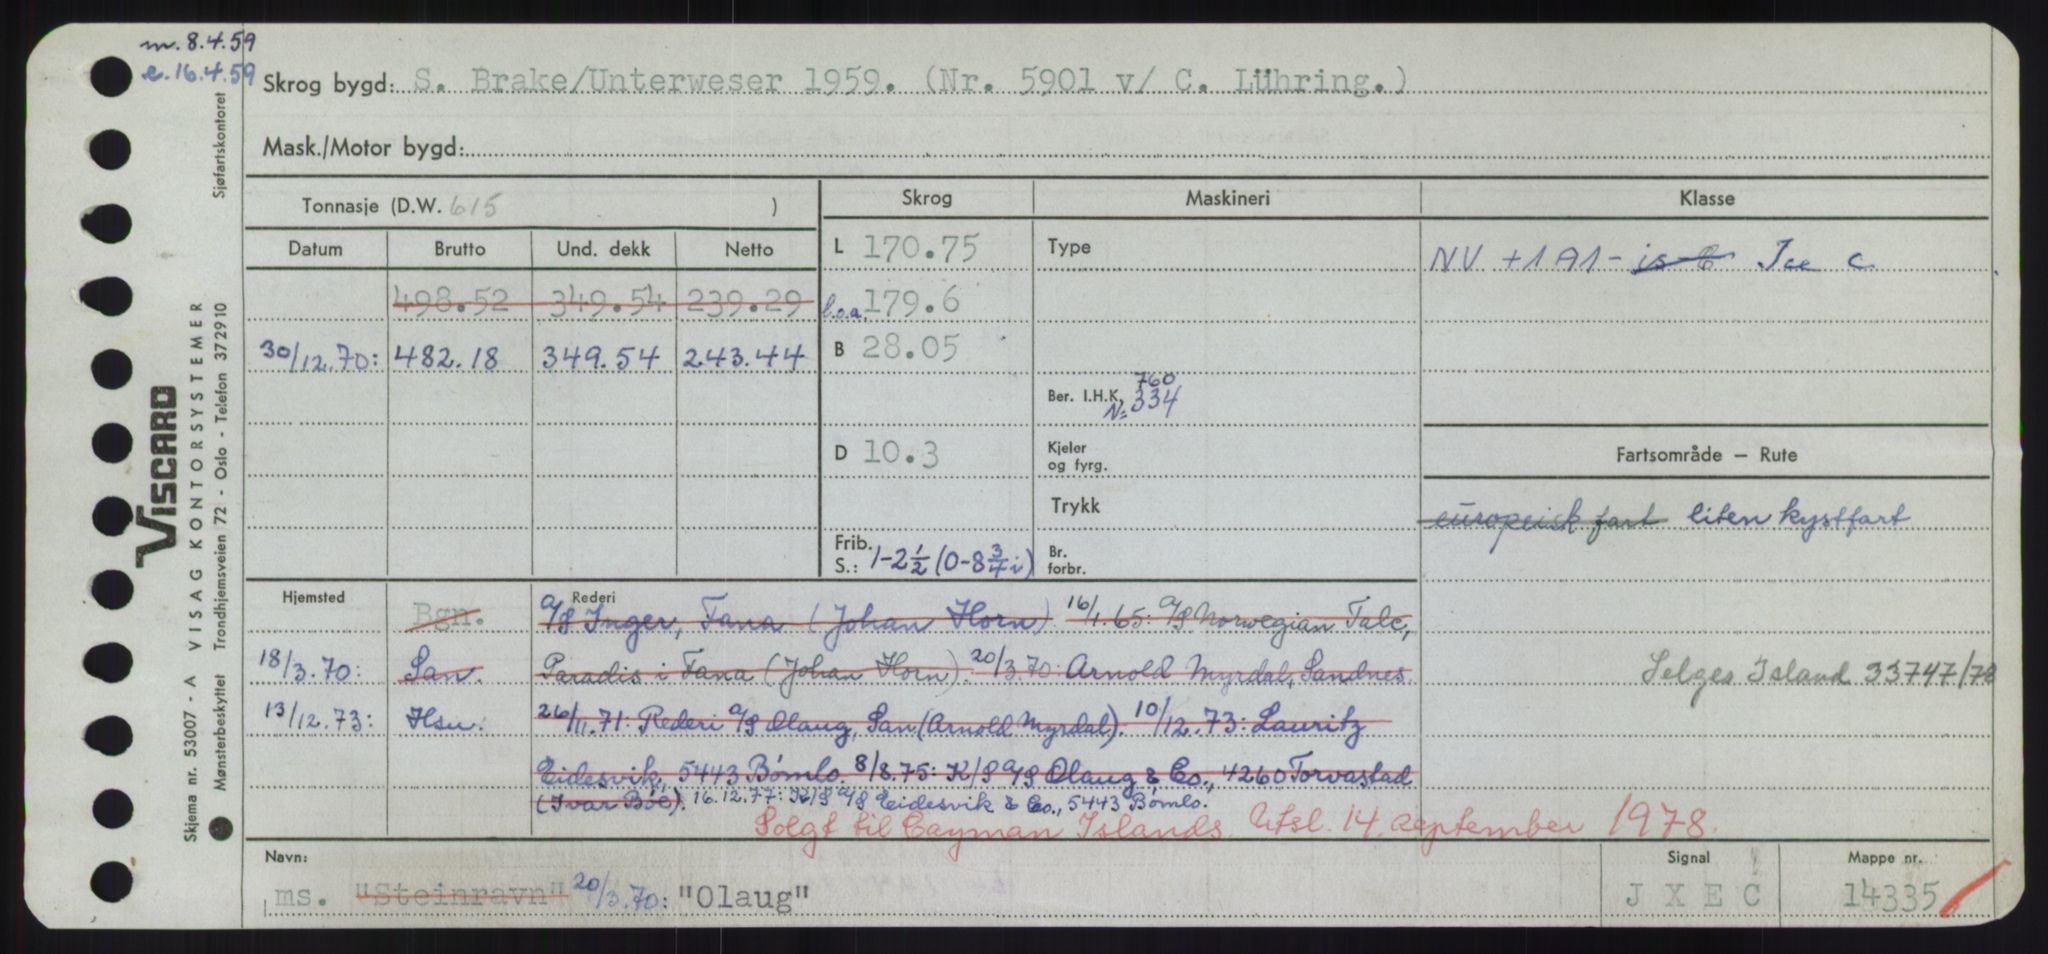 m. 8.4.59
e. 16.4.59
Skrog bygd: S. Brake/Unterweser 1959. (Nr. 5901 v/ C. Lühring.)
Mask./Motor bygd:
Tonnasje (D.W. 615 )
Skrog Maskineri Klasse
Datum Brutto Und. dekk Netto
L 170.75 Type NV +1A1- is C Ice C
498.52 349.54 239.29 l.o.a. 179.6
30/12.70: 482.18 349.54 243.44 B 28.05
760
Ber. I.H.K. N= 334
D 10.3 Kjeler og fyrg. Fartsområde – Rute
Trykk europeisk fart liten kystfart
Frib. S.: 1-2 1/2 (0-8 3/4 i) Br. forbr.
Hjemsted Rederi
Bgn. A/S Inger, Fana (Johan Horn) 16/1.65: A/S Norwegian Talc,
18/3.70: San. Paradis i Fana (Johan Horn). 20/3.70: Arnold Myrdal, Sandnes Selges Island 33747/78
13/12.73: Hsu. 26/11.71: Rederi A/S Olaug, San (Arnold Myrdal). 10/12.73: Lauritz
Eidesvik, 5443 Bømlo. 8/8.75: K/S A/S Olaug & Co., 4260 Torvastad
(Ivar Bøe). 16.12.77: K/S A/S Eidesvik & Co., 5443 Bømlo.
Solgt til Cayman Islands. Utsl. 14. september 1978.
Navn: Signal Mappe nr.
ms. "Steinravn" 20/3.70: "Olaug" J X E C 14335
VISCARD
VISAG KONTORSYSTEMER
Skjema nr. 53007 - A
Mønsterbeskyttet
Trondhjemsveien 72 - Oslo - Telefon 372910
Sjøfartskontoret